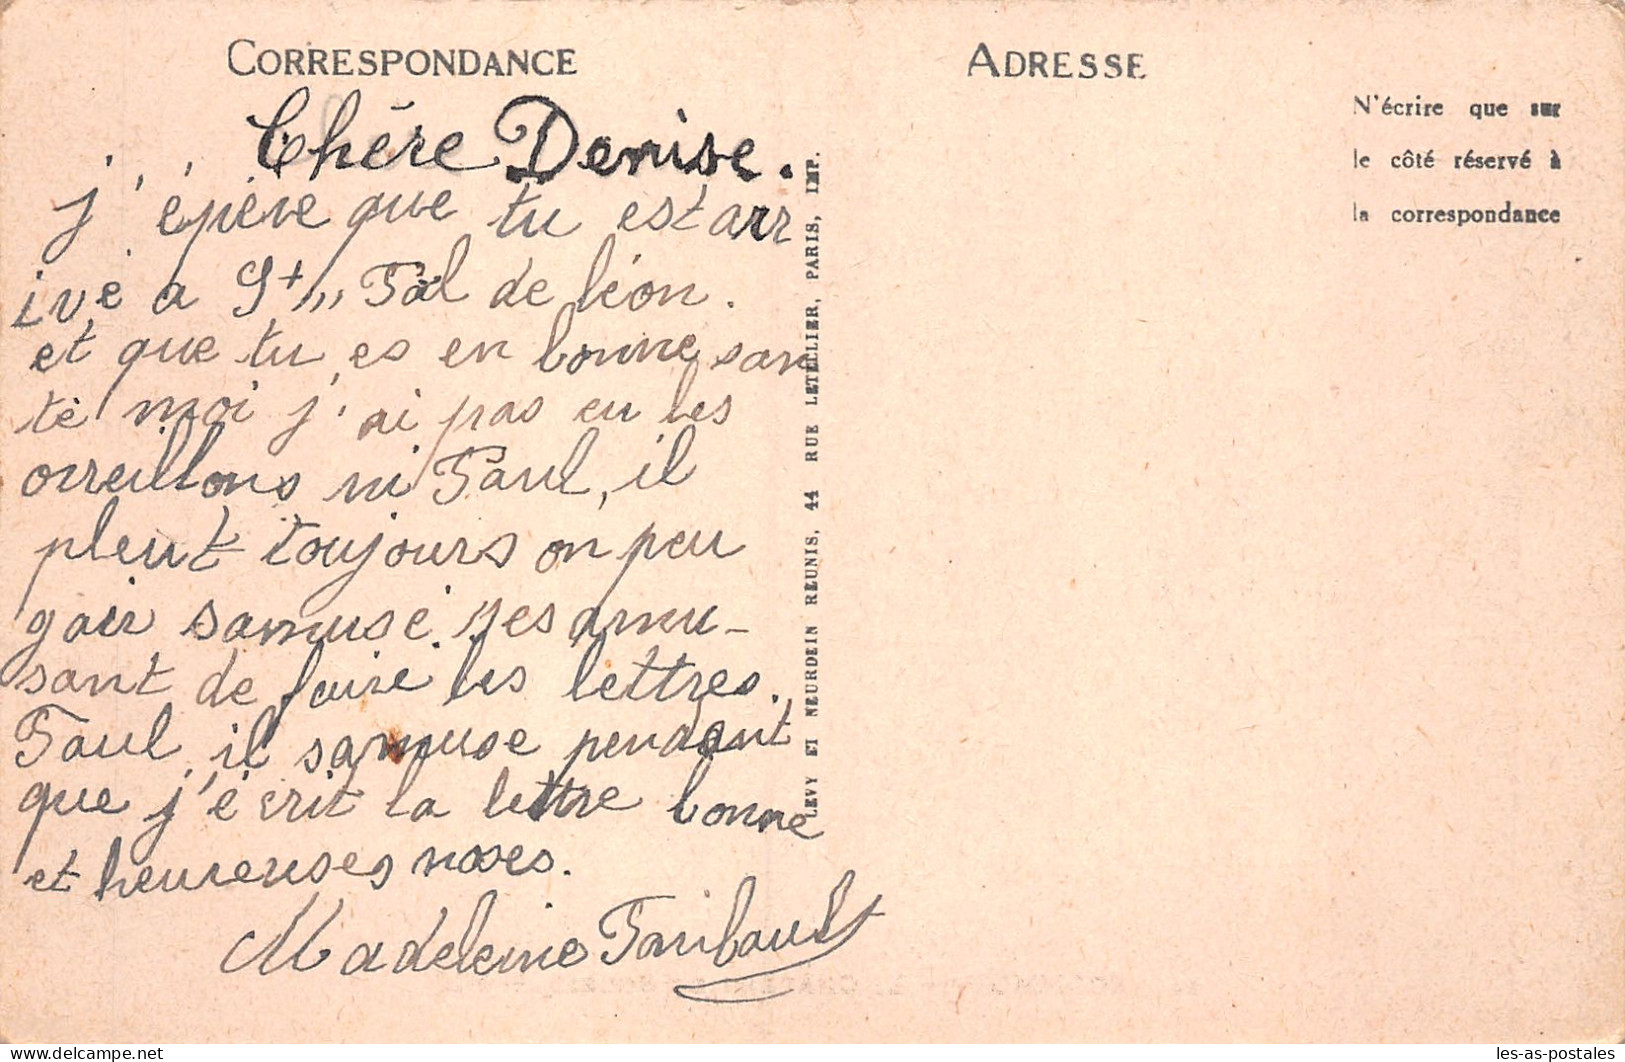 CORRESPONDANCE
Chère Denise.
j'épère que tu est arr
ivé a St,, Pol de léon.
et que tu es en bonne san
té moi j'ai pas eu les
orreillons ni Paul, il
pleut toujours on peu
gair samusé. jes amu-
sant de faire les lettres.
Paul, il samuse pendant
que j'écrit la lettre bonne
et heureuses noxes.
Madeleine
LEVY ET NEURDEIN REUNIS, 44 RUE LETELLIER, PARIS, IMP.
ADRESSE
N'écrire que sur
le côté réservé à
la correspondance
les-as-postales